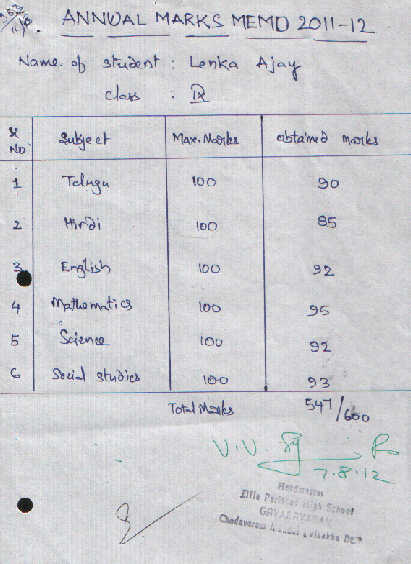 ANNUAL MARKS MEMO 2011-12
Name of student : Lenka Ajay
class : IX
S NO Subject Max. Marks obtained marks
1 Telugu 100 90
2 Hindi 100 85
3 English 100 92
4 Mathematics 100 95
5 Science 100 92
6 Social studies 100 93
Total Marks 547/600
7.8.12
Headmaster
Zilla Parishad High School
GAVARAVARAM
Chodavaram Mandal Visakha Dt